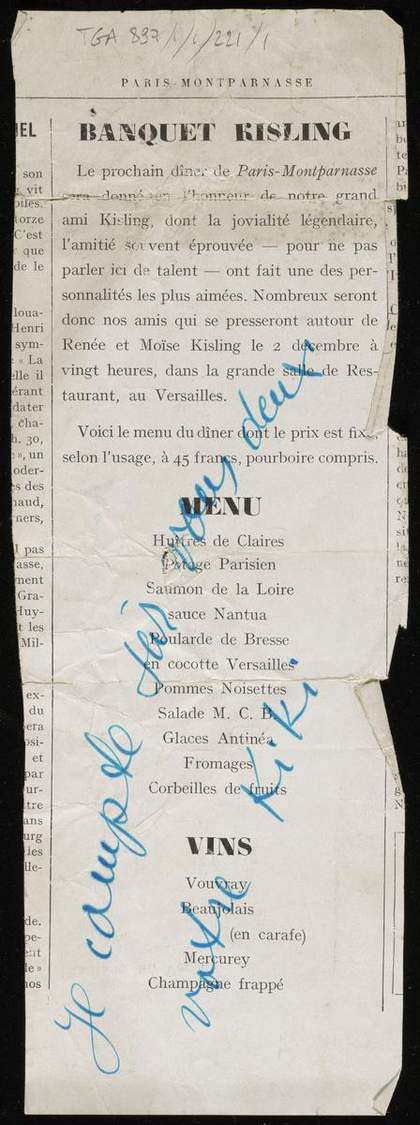 TGA 897/1/1/221/1
PARIS-MONTPARNASSE
BANQUET KISLING
Le prochain dîner de Paris-Montparnasse
sera donné en l'honneur de notre grand
ami Kisling, dont la jovialité légendaire,
l'amitié souvent éprouvée — pour ne pas
parler ici de talent — ont fait une des per-
sonnalités les plus aimées. Nombreux seront
donc nos amis qui se presseront autour de
Renée et Moïse Kisling le 2 décembre à
vingt heures, dans la grande salle de Res-
taurant, au Versailles.
Voici le menu du dîner dont le prix est fixé,
selon l'usage, à 45 francs, pourboire compris.
MENU
Huîtres de Claires
Potage Parisien
Saumon de la Loire
sauce Nantua
Poularde de Bresse
en cocotte Versailles
Pommes Noisettes
Salade M. C. B.
Glaces Antinéa
Fromages
Corbeilles de fruits
VINS
Vouvray
Beaujolais
(en carafe)
Mercurey
Champagne frappé
Je compte sur vous deux
votre Kiki
IEL
son
vit
piles.
torze
C'est
que
de le
loua-
Henri
sym-
« La
elle il
érant
dater
cha-
h. 30,
», un
oder-
s des
naud,
ners,
l pas
asse,
ment
Gra-
Huy-
t les
Mil-
ex-
du
era
osi-
et
par
ur-
tre
ans
urg
les
lle-
de.
pe-
ent
le »
nos